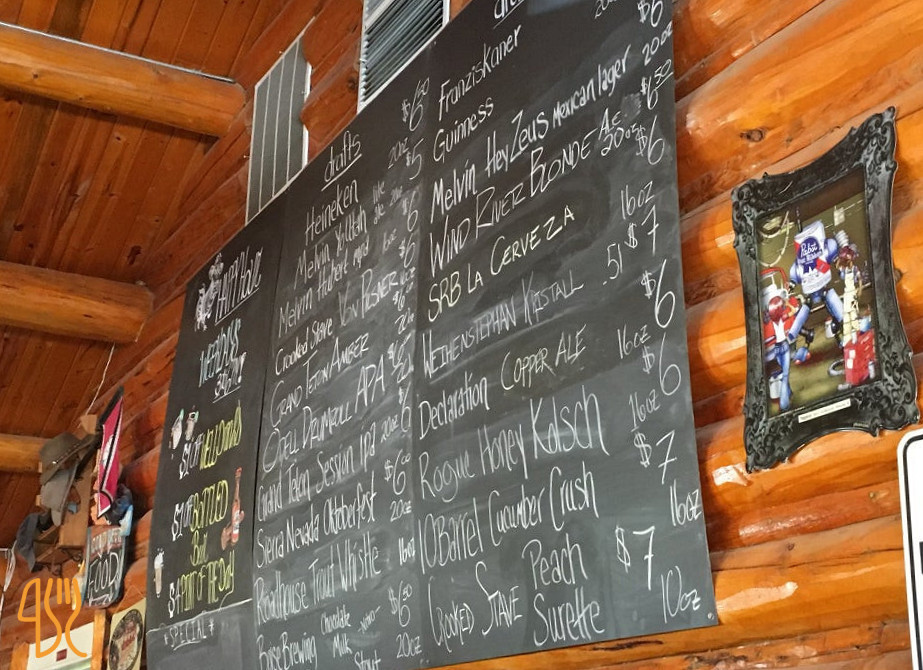 Happy Hour
WEEKDAYS
$1 OFF WELL DRINKS
$1 OFF BOTTLED
Beer
$1 PINT OF THE DAY
*SPECIAL*
FOOD
drafts
Heineken 20oz $6.50
Melvin $5
Melvin Hubert mpa $6
Crooked Stave Von Pilsner $6
GRAND TETON AMBER $6
ODELL DRUMROLL APA
Grand Teton Session IPA 20oz
Sierra Nevada Oktoberfest $6.50 20oz
Roadhouse Trout Whistle 16oz
Brewing Chocolate Milk Stout $6.50 20oz
Franziskaner $6
Guinness 20oz
Melvin HeyZeus Mexican lager $6.50
WIND RIVER BLONDE Ale 20oz $6
SRB LA CERVEZA 16oz $7
WEIHENSTEPHAN KRISTALL .5l $6
Declaration COPPER ALE 16oz $6
Rogue Honey Kolsch 16oz $7
10Barrel Cucumber Crush 16oz
CROOKED STAVE Peach Surette $7 10oz
Pabst